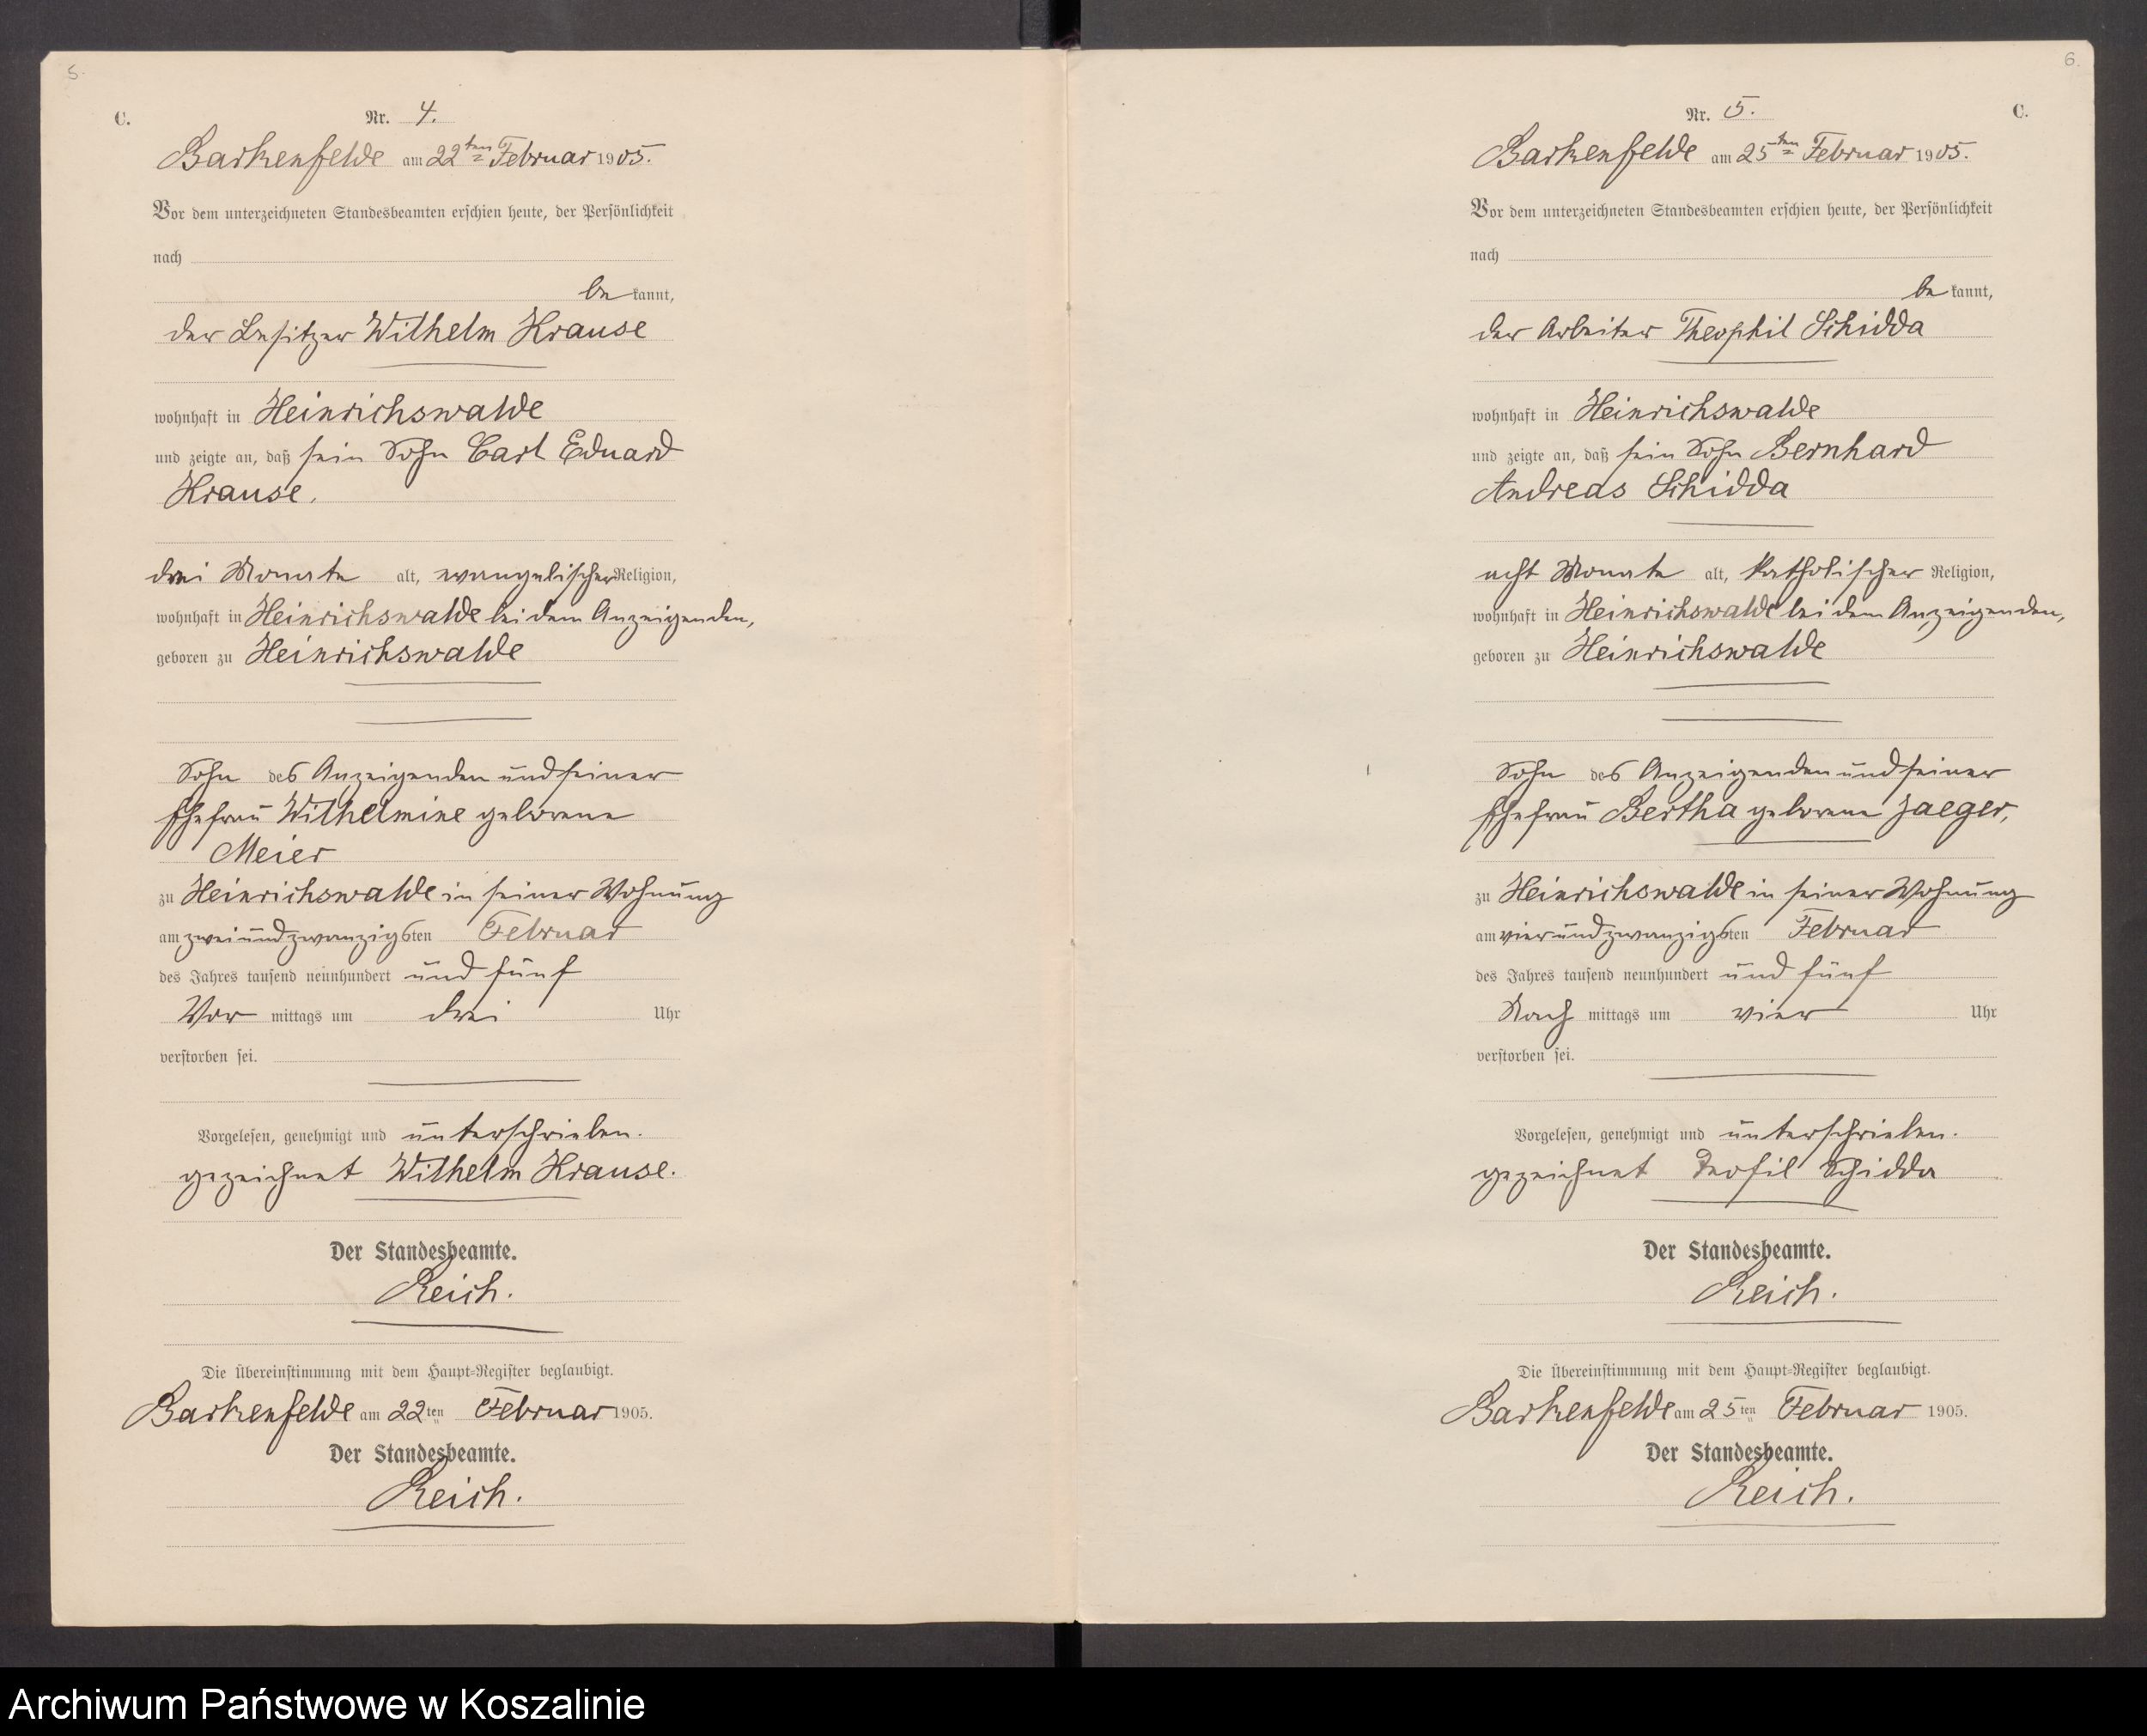 5.
C.
Nr. 4.
Barkenfelde am 22ten Februar 1905.
Vor dem unterzeichneten Standesbeamten erschien heute, der Persönlichkeit
nach
be kannt,
der Besitzer Wilhelm Krause
wohnhaft in Heinrichswalde
und zeigte an, daß sein Sohn Carl Eduard
Krause.
drei Monate alt, evangelischer Religion,
wohnhaft in Heinrichswalde bei dem Anzeigenden,
geboren zu Heinrichswalde
Sohn des Anzeigenden und seiner
Ehefrau Wilhelmine geborene
Meier
zu Heinrichswalde in seiner Wohnung
am zweiundzwanzigsten Februar
des Jahres tausend neunhundert und fünf
Vor mittags um drei Uhr
verstorben sei.
Vorgelesen, genehmigt und unterschrieben.
gezeichnet Wilhelm Krause.
Der Standesbeamte.
Reich.
Die Übereinstimmung mit dem Haupt-Register beglaubigt.
Barkenfelde am 22ten Februar 1905.
Der Standesbeamte.
Reich.
6.
Nr. 5.
C.
Barkenfelde am 25ten Februar 1905.
Vor dem unterzeichneten Standesbeamten erschien heute, der Persönlichkeit
nach
be kannt,
der Arbeiter Theophil Schidda
wohnhaft in Heinrichswalde
und zeigte an, daß sein Sohn Bernhard
Andreas Schidda
acht Monate alt, katholischer Religion,
wohnhaft in Heinrichswalde bei dem Anzeigenden,
geboren zu Heinrichswalde
Sohn des Anzeigenden und seiner
Ehefrau Bertha geborene Jaeger,
zu Heinrichswalde in seiner Wohnung
am vierundzwanzigsten Februar
des Jahres tausend neunhundert und fünf
Nach mittags um vier Uhr
verstorben sei.
Vorgelesen, genehmigt und unterschrieben.
gezeichnet Teofil Schidda
Der Standesbeamte.
Reich.
Die Übereinstimmung mit dem Haupt-Register beglaubigt.
Barkenfelde am 25ten Februar 1905.
Der Standesbeamte.
Reich.
Archiwum Państwowe w Koszalinie